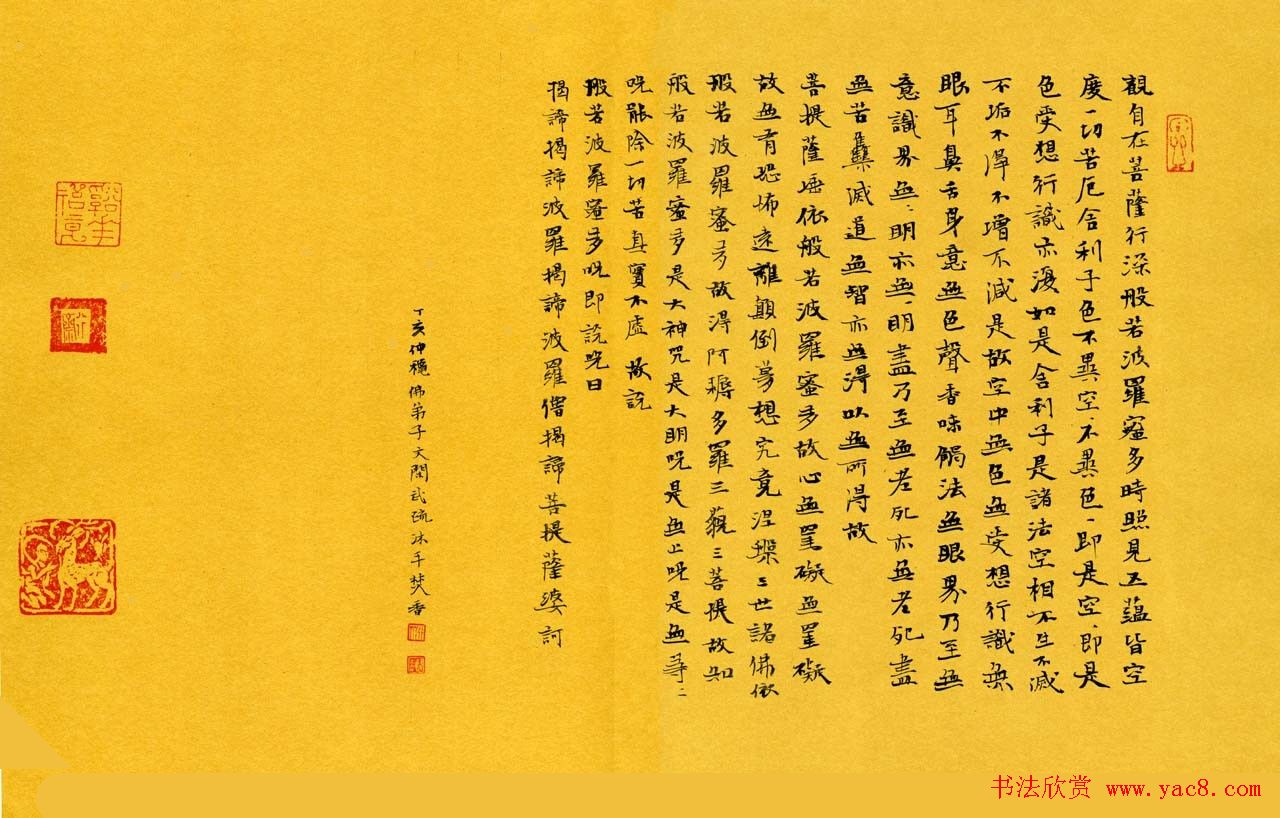 觀自在菩薩行深般若波羅蜜多時照見五蘊皆空
度一切苦厄舍利子色不異空、不異色、即是空、即是
色受想行識亦復如是舍利子是諸法空相不生不滅
不垢不淨不增不減是故空中無色無受想行識無
眼耳鼻舌身意無色聲香味觸法無眼界乃至無
意識界無、明亦無、明盡乃至無老死亦無老死盡
無苦集滅道無智亦無得以無所得故
菩提薩埵依般若波羅蜜多故心無罣礙無罣礙
故無有恐怖遠離顛倒夢想究竟涅槃三世諸佛依
般若波羅蜜多故得阿耨多羅三藐三菩提故知
般若波羅蜜多是大神咒是大明咒是無上咒是無等=
咒能除一切苦真實不虛故說
般若波羅蜜多咒即說咒曰
揭諦揭諦波羅揭諦波羅僧揭諦菩提薩婆訶
丁亥仲穐佛弟子文閑武疏沐手焚香
书法欣赏 www.yac8.com